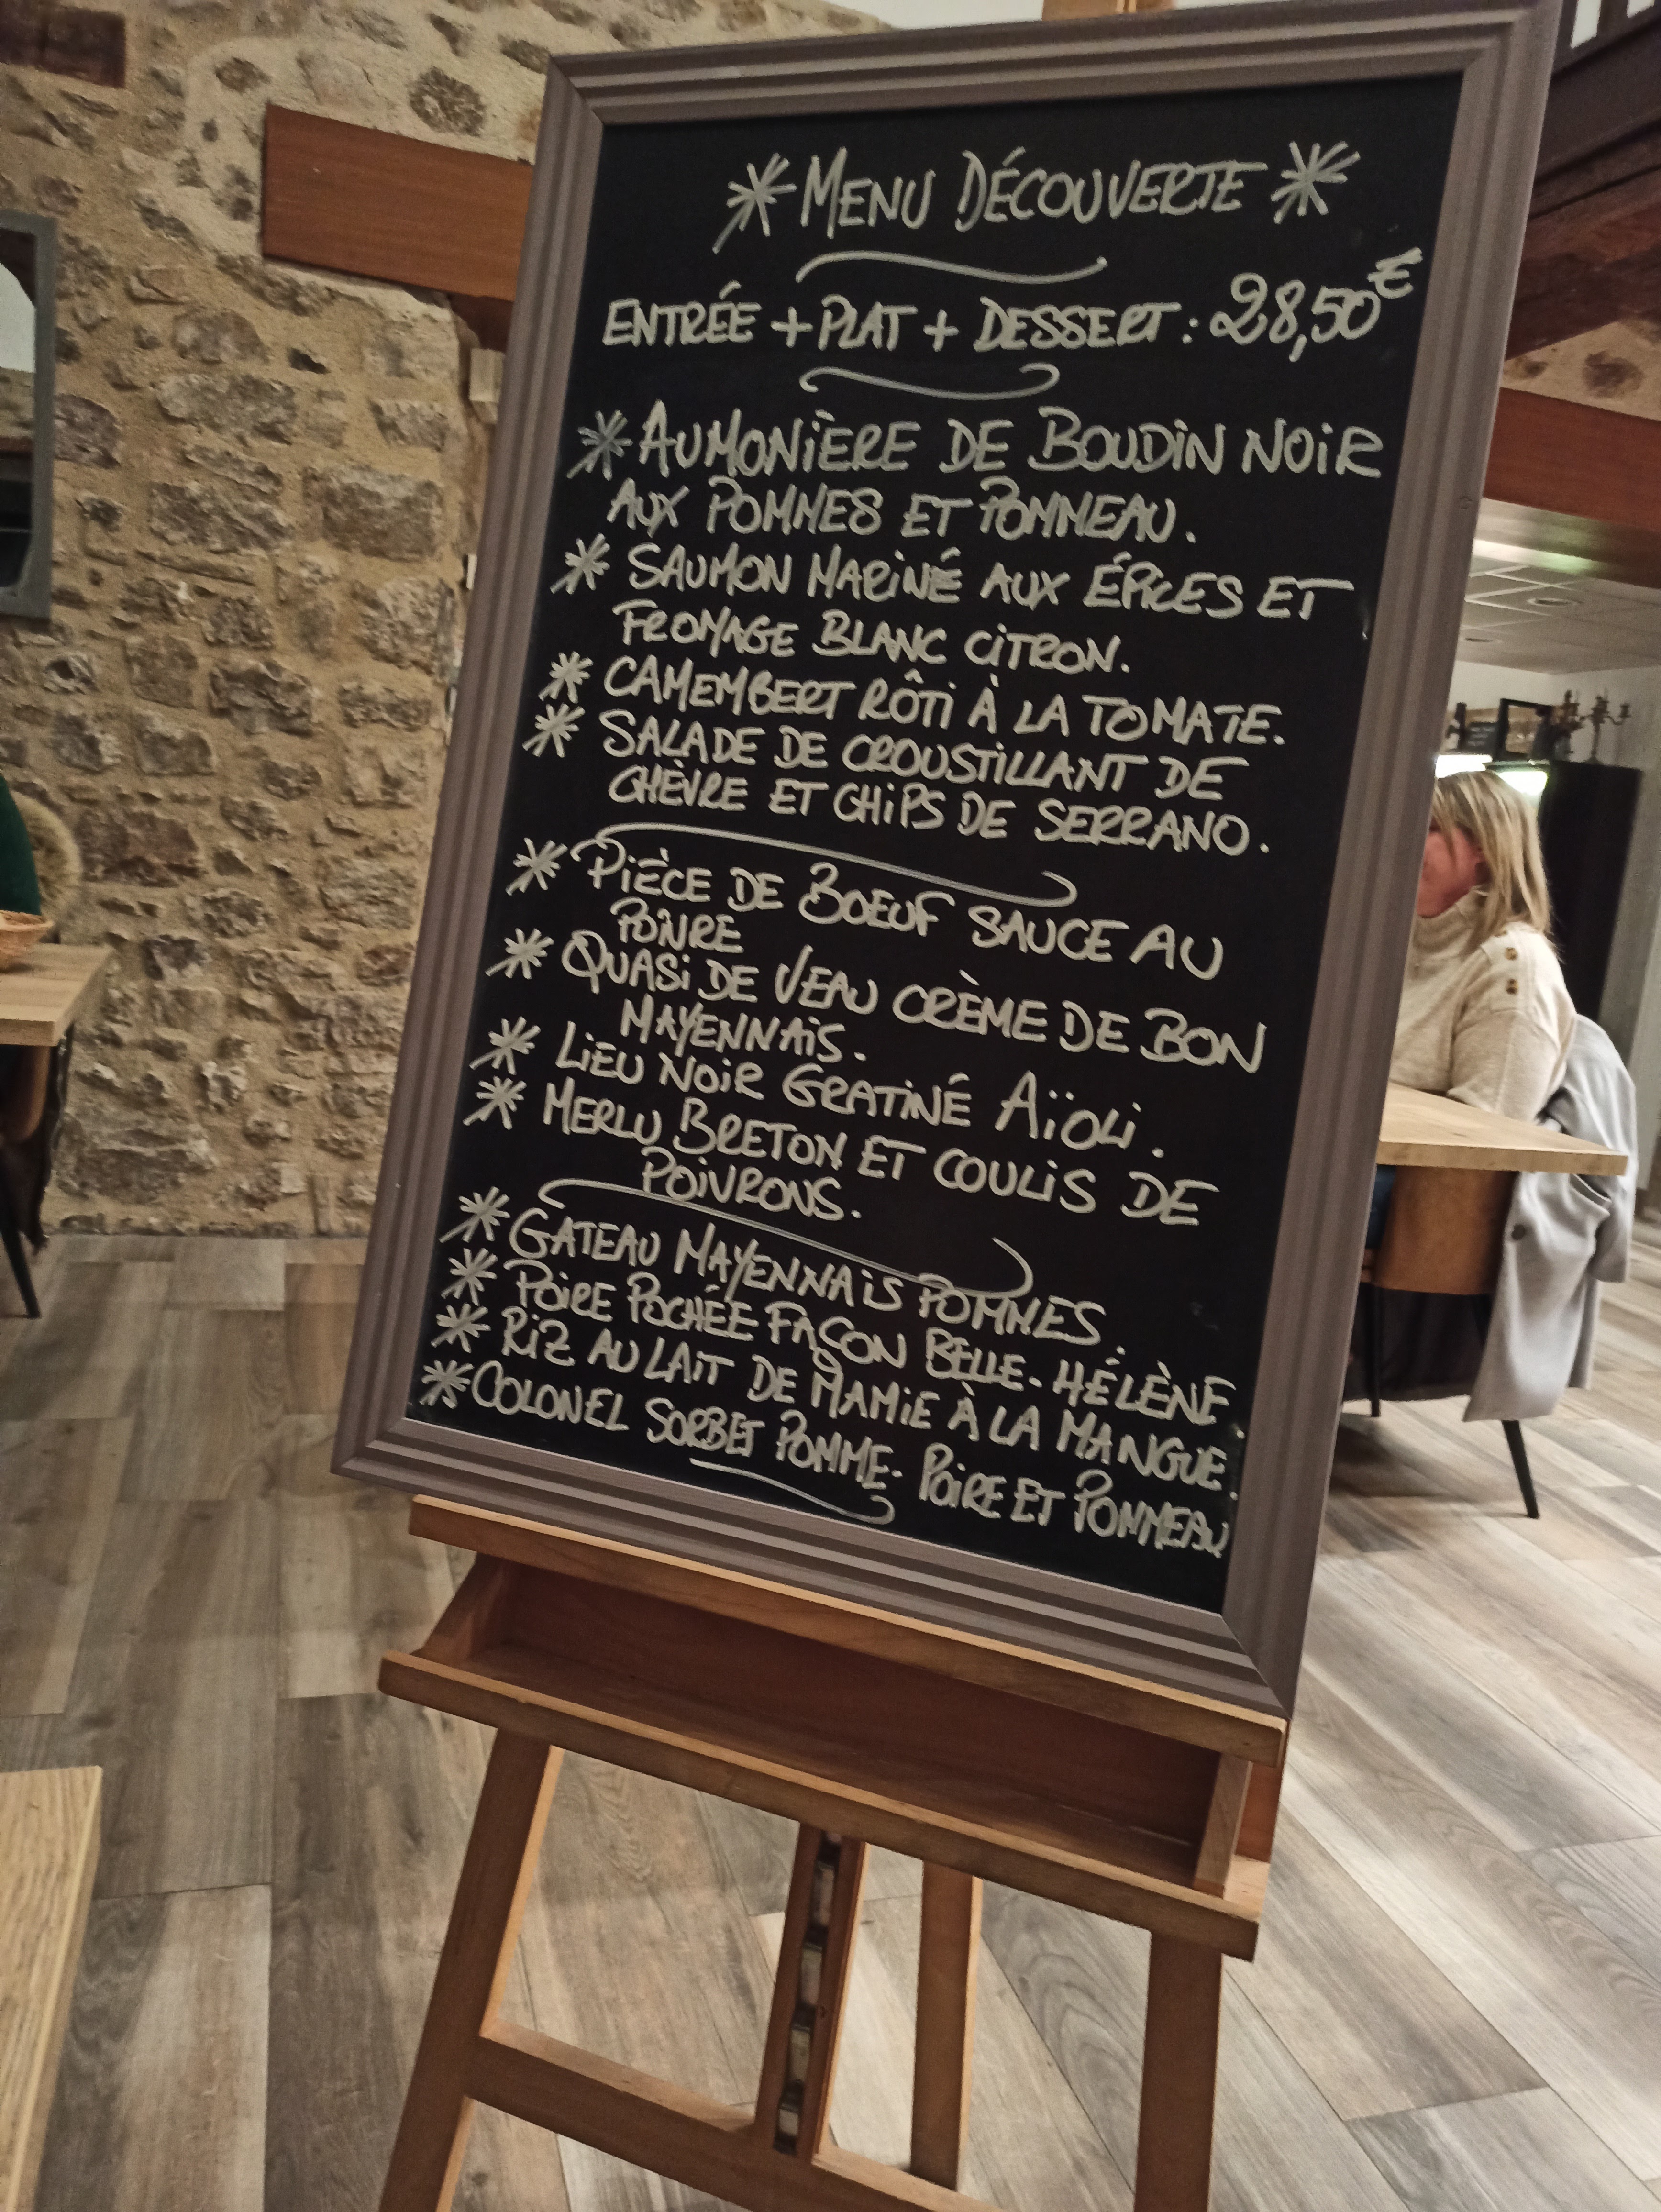 * MENU DÉCOUVERTE *
ENTRÉE + PLAT + DESSERT : 28,50€
* AUMONIÈRE DE BOUDIN NOIR
AUX POMMES ET POMMEAU.
* SAUMON MARINÉ AUX ÉPICES ET
FROMAGE BLANC CITRON.
* CAMEMBERT RÔTI À LA TOMATE.
* SALADE DE CROUSTILLANT DE
CHÈVRE ET CHIPS DE SERRANO.
* PIÈCE DE BOEUF SAUCE AU
POIVRE
* QUASI DE VEAU CRÈME DE BON
MAYENNAIS.
* LIEU NOIR GRATINÉ AÏOLI.
* MERLU BRETON ET COULIS DE
POIVRONS.
* GATEAU MAYENNAIS POMMES.
* POIRE POCHÉE FAÇON BELLE-HÉLÈNE
* RIZ AU LAIT DE MAMIE À LA MANGUE.
* COLONEL SORBET POMME-POIRE ET POMMEAU